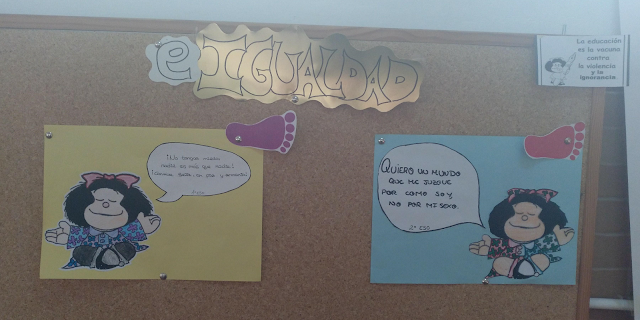 e IGUALDAD
La educación
es la vacuna
contra
la violencia
y la
ignorancia.
¡No tengas miedo
nadie es más que nadie!
QUIERO UN MUNDO
QUE ME JUZGUE
POR COMO SOY,
NO POR MI SEXO.
2º ESO